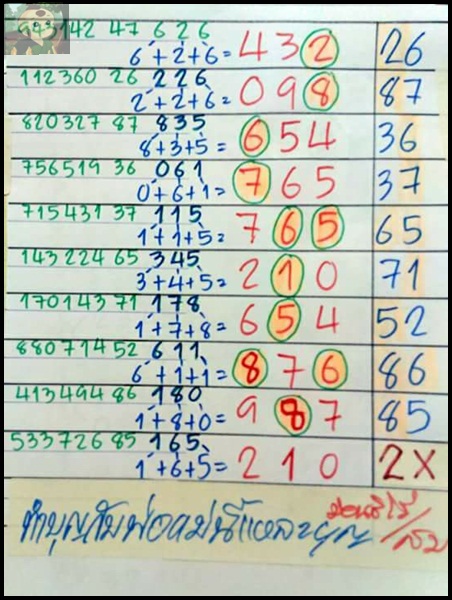 943142 47 626
6+2+6= 432 26
112360 26 226
2+2+6= 098 87
820327 87 835
8+3+5= 654 36
756519 36 061
0+6+1= 765 37
715431 37 115
1+1+5= 765 65
143224 65 345
3+4+5= 210 71
170143 71 178
1+7+8= 654 52
880714 52 611
6+1+1= 876 86
413494 86 180
1+8+0= 987 85
533726 85 165
1+6+5= 210 2X
ทำบุญกับพ่อแม่นี่แหละบุญ